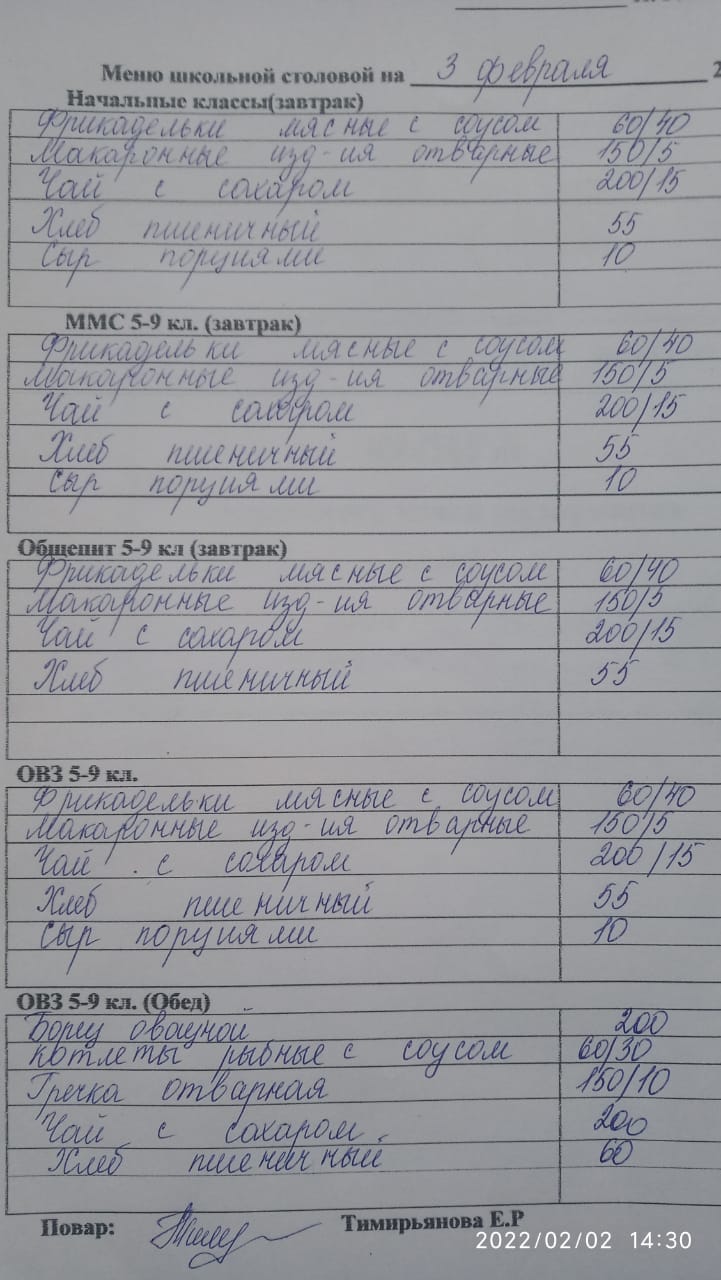 Меню школьной столовой на 3 февраля 2
Начальные классы(завтрак)
Фрикадельки мясные с соусом 60/40
Макаронные изд-ия отварные 150/5
Чай с сахаром 200/15
Хлеб пшеничный 55
Сыр порциями 10
ММС 5-9 кл. (завтрак)
Фрикадельки мясные с соусом 60/40
Макаронные изд-ия отварные 150/5
Чай с сахаром 200/15
Хлеб пшеничный 55
Сыр порциями 10
Общепит 5-9 кл (завтрак)
Фрикадельки мясные с соусом 60/40
Макаронные изд-ия отварные 150/5
Чай с сахаром 200/15
Хлеб пшеничный 55
ОВЗ 5-9 кл.
Фрикадельки мясные с соусом 60/40
Макаронные изд-ия отварные 150/5
Чай с сахаром 200/15
Хлеб пшеничный 55
Сыр порциями 10
ОВЗ 5-9 кл. (Обед)
Борщ овощной 200
котлеты рыбные с соусом 60/30
Гречка отварная 150/10
Чай с сахаром 200
Хлеб пшеничный 60
Повар: Тимирьянова Е.Р
2022/02/02 14:30